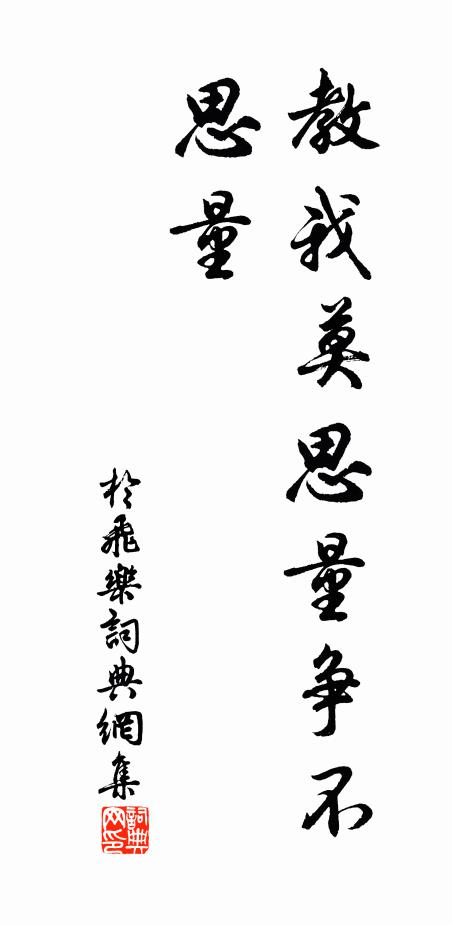 教我莫思量争不
思量
於飛樂詞典網集
詞典網印